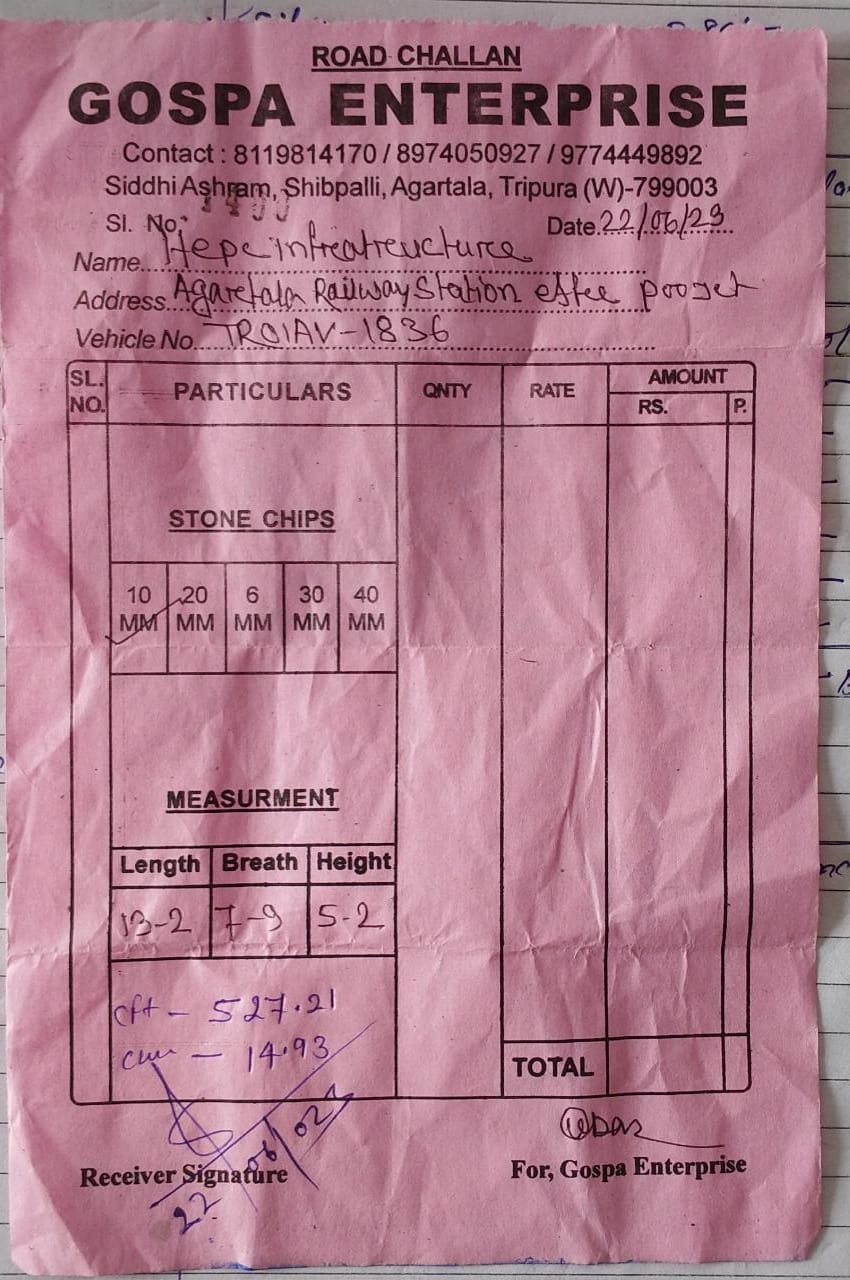 ROAD CHALLAN
GOSPA ENTERPRISE
Contact : 8119814170 / 8974050927 / 9774449892
Siddhi Ashram, Shibpalli, Agartala, Tripura (W)-799003
Sl. No:
Date. 22/06/23
Name. Hepc infreatreucture
Address. Agaretala Railway Station
Vehicle No. TR01AV-1836
SL. NO. PARTICULARS QNTY RATE AMOUNT
RS. P.
STONE CHIPS
10 MM 20 MM 6 MM 30 MM 40 MM
MEASURMENT
Length Breath Height
13-2 7-9 5-2
cft - 527.21
cum - 14.93
TOTAL
Receiver Signature
For, Gospa Enterprise